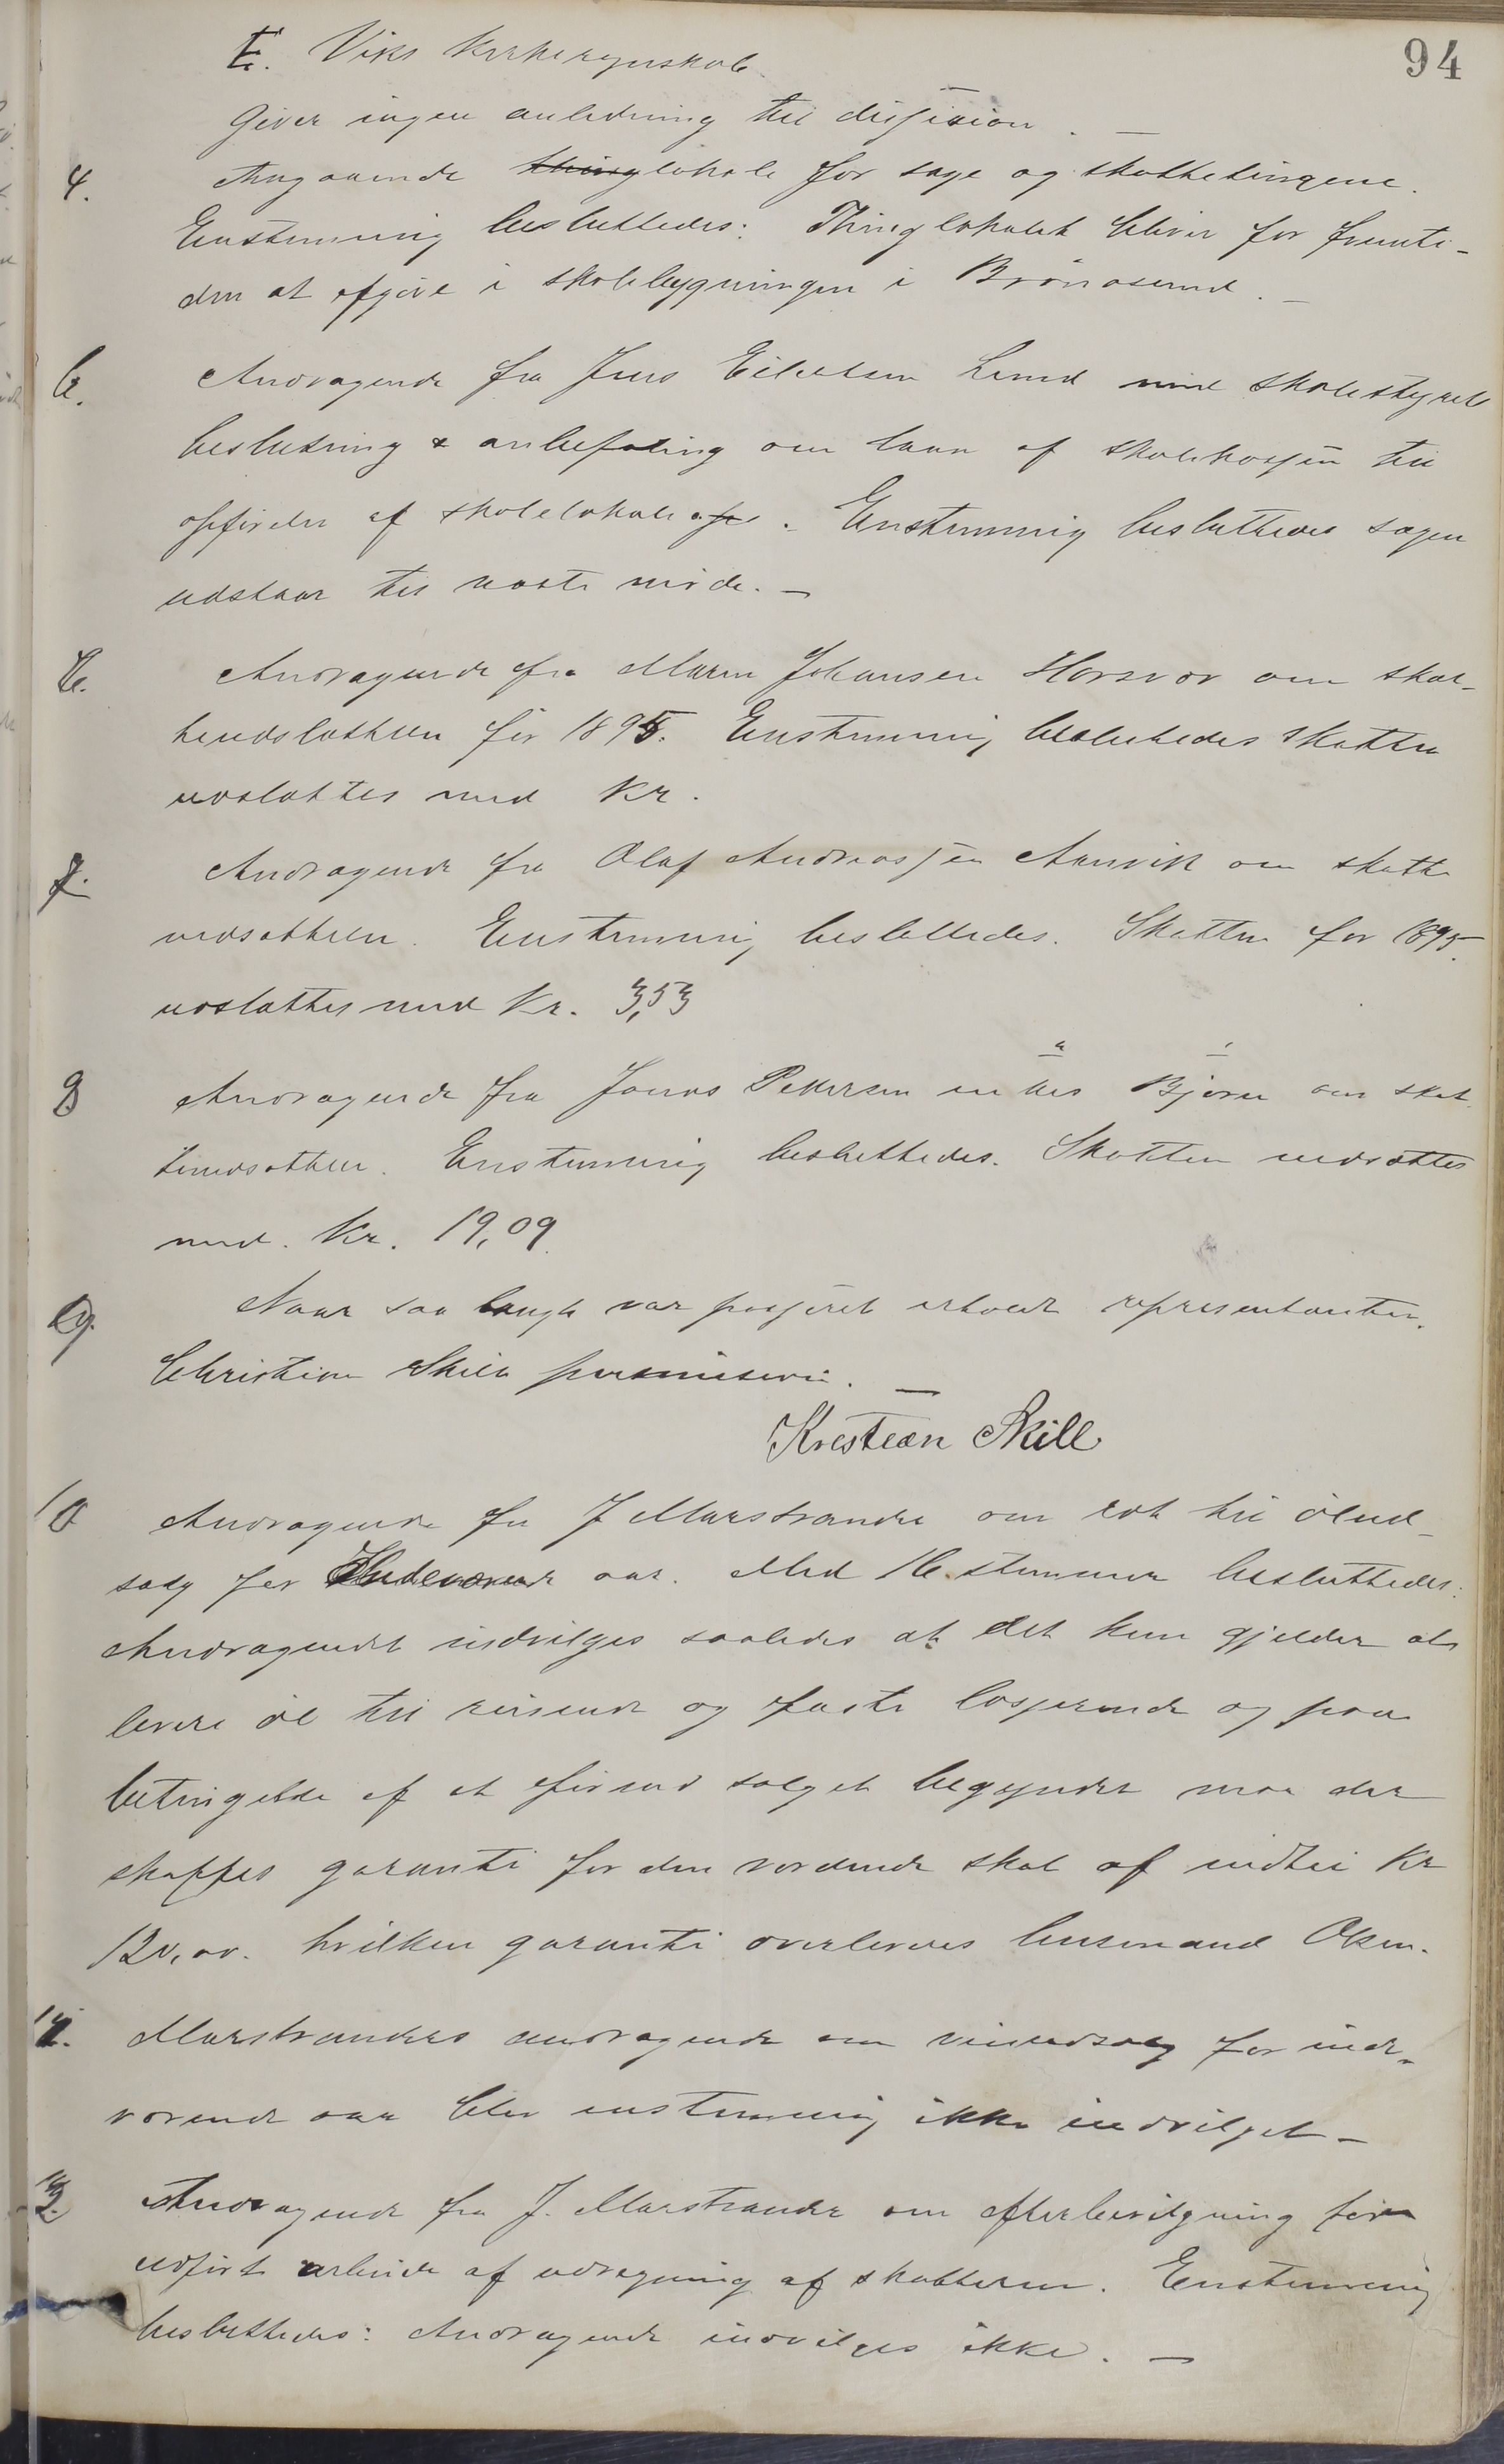 94
E. Viks Kirkeregnskab
giver ingen anledning til disjision. —
4. Angaaende thinglokale for sage og skattetingene.
Enstemmig besluttedes: Thinglokalet bliver for fremti-
den at opgive i skolebygningen i Brønøsund. —
Andragende fra Jens Eilertsen Lund med skolestyrets
beslutning & anbefaling om laan af skolekassen til
opførelse af skolelokale. Enstemmig besluttedes sagen
udstaar til næste møde. —
Andragende fra Maren Johansen Horsvær om skat-
teudslættelse for 1895. Enstemmig besluttedes skatten
udslættes med Kr.
7. Andragende fra Olaf Andreassen Aarsvik om skatte
nedsættelse. Enstemmig besluttedes. Skatten for 1895
udslættes med Kr. 3,53
8 Andragende fra Jonas Petersen enkes Bjøru om skat
tenedsættelse. Enstemmig besluttedes. Skatten nedsættes
med. Kr. 19,09.
9. Naar saa langt var passeret erholdt representanten
Christian Skill permission. —
Kristian Skill
10 Andragende fra J Marstrander om ret til øllud-
salg for Indeværende aar. Med 16 stemmer besluttedes:
Andragendet indvilges saaledes at det kun gjelder at
levere øl til reisende og faste losjerende og paa
betingelse af at førend salget begynder maa der
skaffes garanti for den vordende skat af indtil Kr
120,00. hvilken garanti overleveres lensmand Olsen.
11. Marstranders andragende om vinudsalg for inde-
værende aar blev enstemmig ikke indvilget —
12. Andragende fra J. Marstrander om efterbevilgning for
udført arbeide af udregning af skatterne. Enstemmig
besluttedes: Andragende indvilges ikke. —